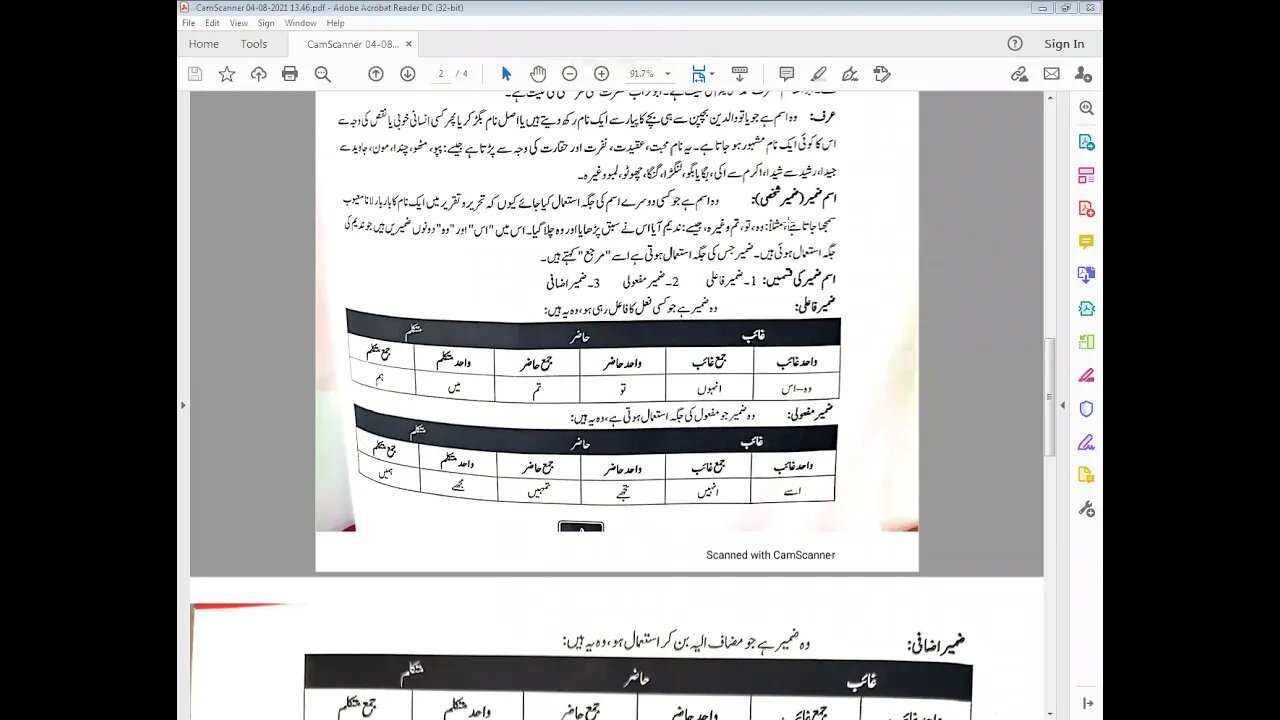 CamScanner 04-08-2021 13.46.pdf - Adobe Acrobat Reader DC (32-bit)
File Edit View Sign Window Help
Home Tools CamScanner 04-08... × Sign In
2 / 4 91.7%
عرف: وہ اسم ہے جو یا تو والدین بچپن سے ہی بچے کا پیار سے ایک نام رکھ دیتے ہیں یا اصل نام بگڑ کر یا پھر کسی انسانی خوبی یا نقص کی وجہ سے
اس کا کوئی ایک نام مشہور ہو جاتا ہے۔ یہ نام محبت، عقیدت، نفرت اور حقارت کی وجہ سے پڑتا ہے جیسے: پپو، مٹھو، چندا، مون، جاوید سے
جیدا، رشید سے شیدا، اکرم سے اکی، بگا یا بگو، لنگڑا، گنگا، چھوٹو، لمبو وغیرہ۔
اسم ضمیر (ضمیر شخصی): وہ اسم ہے جو کسی دوسرے اسم کی جگہ استعمال کیا جائے کیوں کہ تحریر و تقریر میں ایک نام کا بار بار لانا معیوب
سمجھا جاتا ہے، مثلاً: وہ، تو، تم وغیرہ، جیسے: ندیم آیا اس نے سبق پڑھایا اور وہ چلا گیا۔ اس میں "اس" اور "وہ" دونوں ضمیریں ہیں جو ندیم کی
جگہ استعمال ہوئی ہیں۔ ضمیر جس کی جگہ استعمال ہوتی ہے اسے "مرجع" کہتے ہیں۔
اسم ضمیر کی قسمیں: 1۔ ضمیر فاعلی 2۔ ضمیر مفعولی 3۔ ضمیر اضافی
ضمیر فاعلی: وہ ضمیر ہے جو کسی فعل کا فاعل رہی ہو، وہ یہ ہیں:
غائب حاضر متکلم
واحد غائب جمع غائب واحد حاضر جمع حاضر واحد متکلم جمع متکلم
وہ–اس انہوں تو تم میں ہم
ضمیر مفعولی: وہ ضمیر جو مفعول کی جگہ استعمال ہوتی ہے، وہ یہ ہیں:
غائب حاضر متکلم
واحد غائب جمع غائب واحد حاضر جمع حاضر واحد متکلم جمع متکلم
اسے انہیں تجھے تمہیں مجھے ہمیں
Scanned with CamScanner
ضمیر اضافی: وہ ضمیر ہے جو مضاف الیہ بن کر استعمال ہو، وہ یہ ہیں:
غائب حاضر متکلم
واحد غائب جمع غائب واحد حاضر جمع حاضر واحد متکلم جمع متکلم